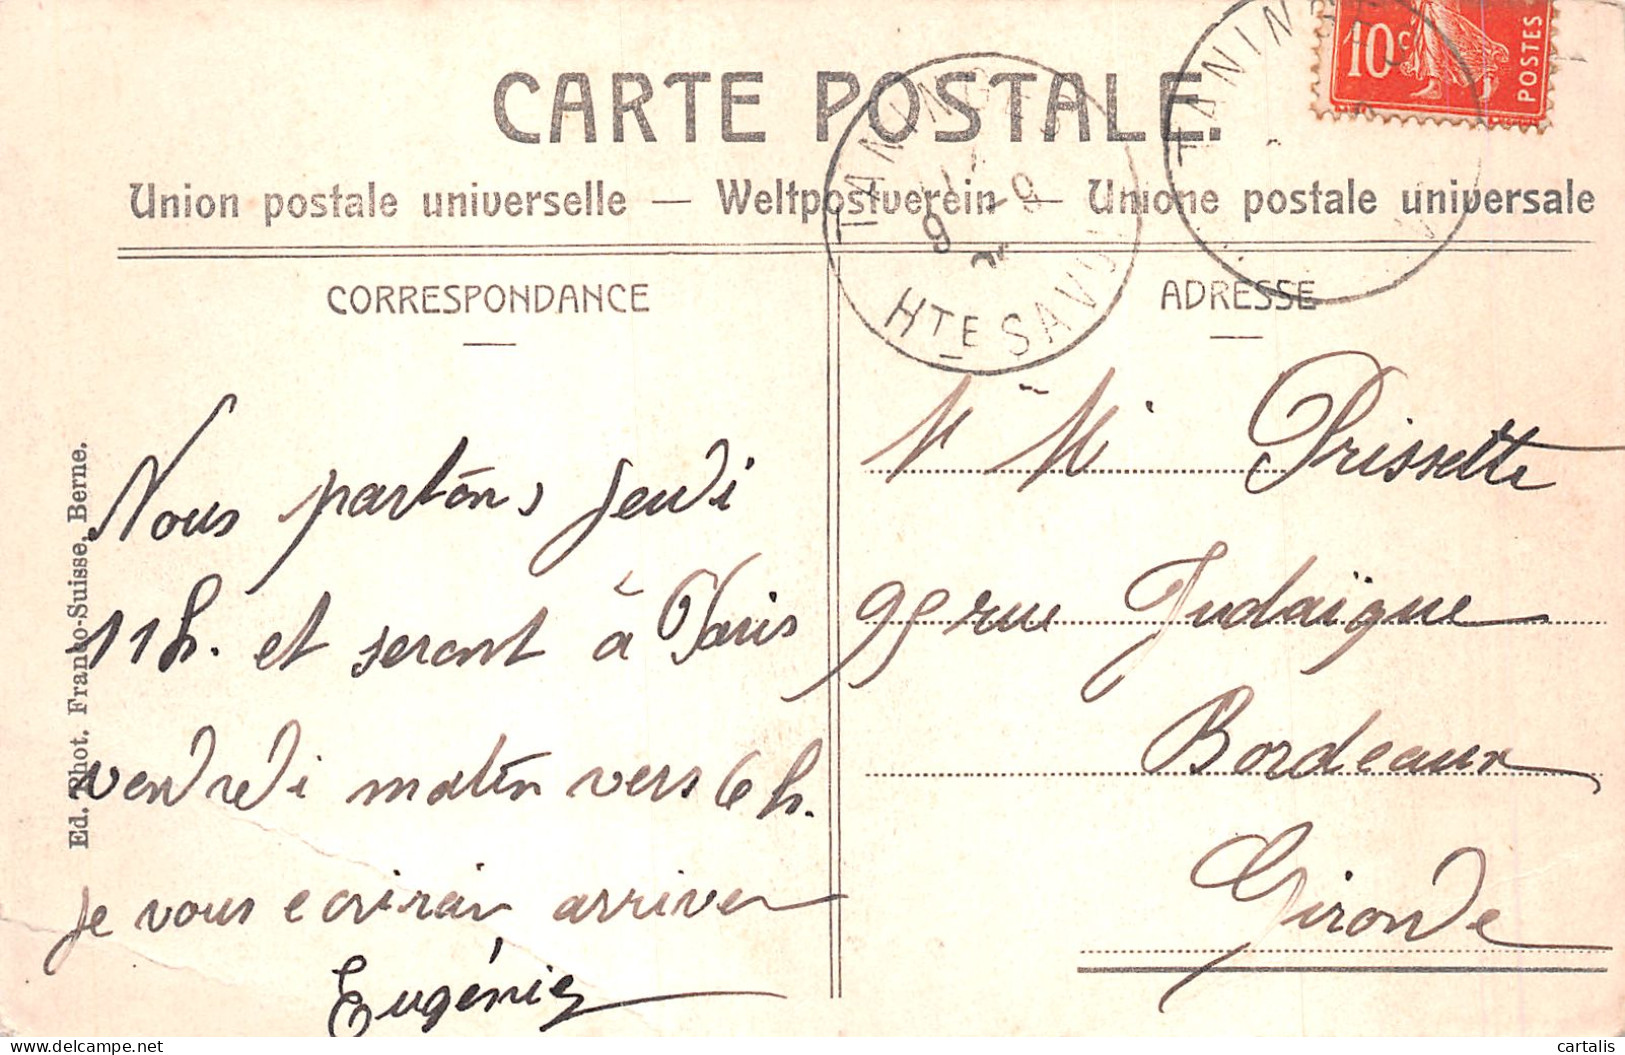 CARTE POSTALE.
Union postale universelle — Weltpostverein — Unione postale universale
10c POSTES
TANINGES
9 - 9
Hte SAVOIE
TANIN
CORRESPONDANCE
ADRESSE
Nous partons jeudi
11 h. et seront à Paris
vendredi matin vers 6 h.
je vous ecrirai arriver
Eugénie
M Mr Prissette
95 rue Judaïque
Bordeaux
Gironde
Ed. Phot. Franco-Suisse, Berne.
cartalis
delcampe.net